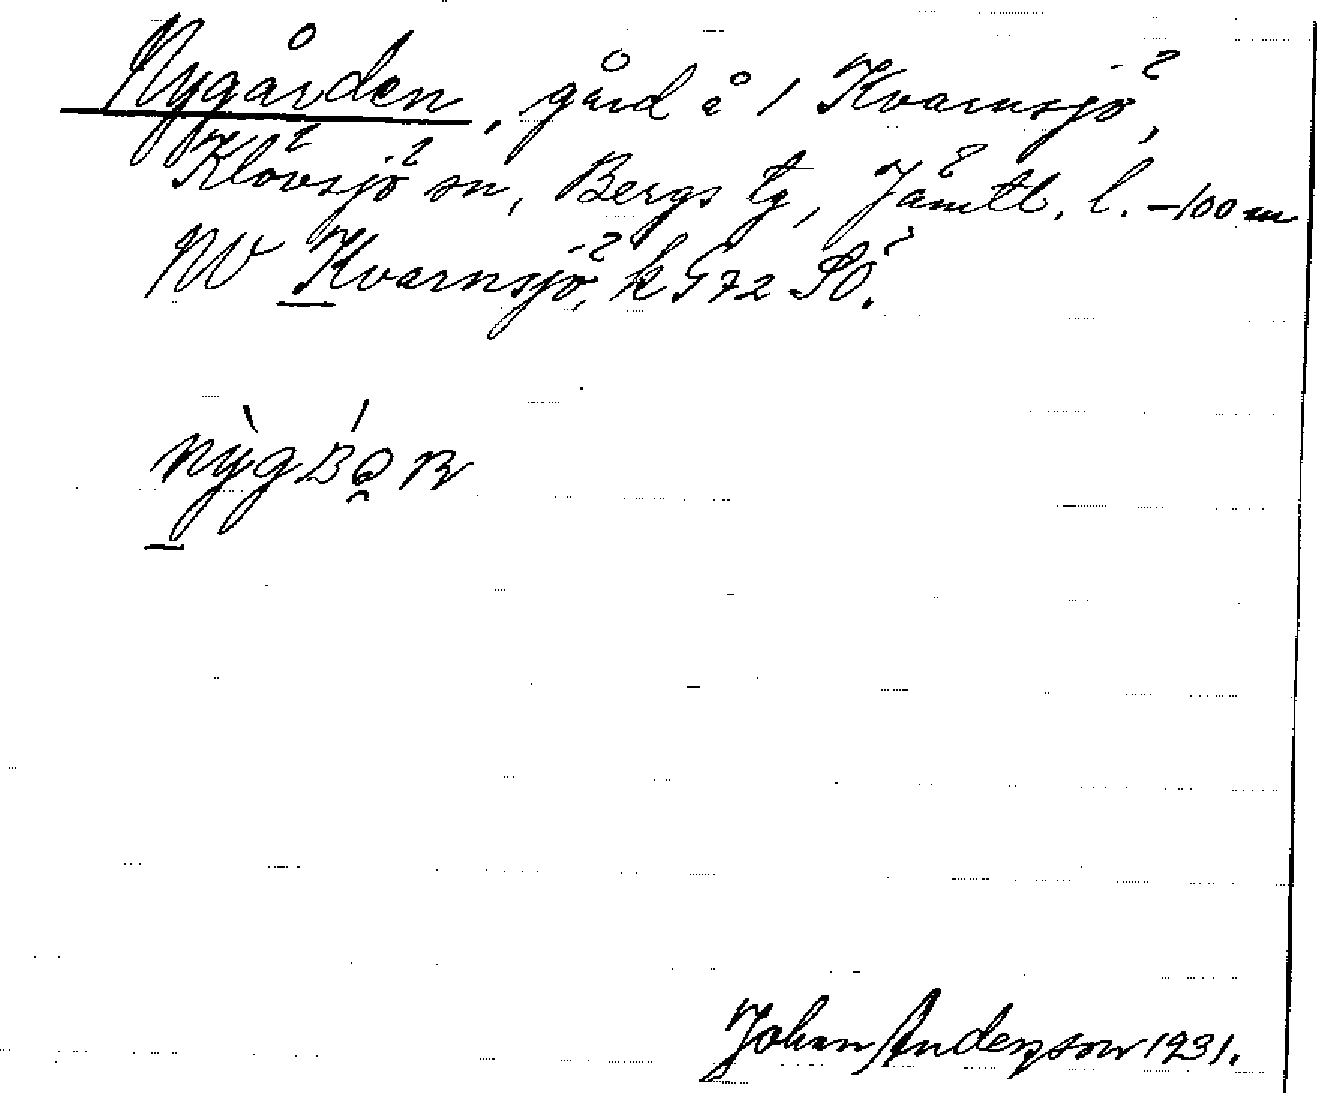 Nygården, gård å 1 Kvarnsjö,
Klövsjö sn, Bergs tg, Jämtl. l. -100 m
NV Kvarnsjö, k G 72 SO.
Johan Anderson 1931.